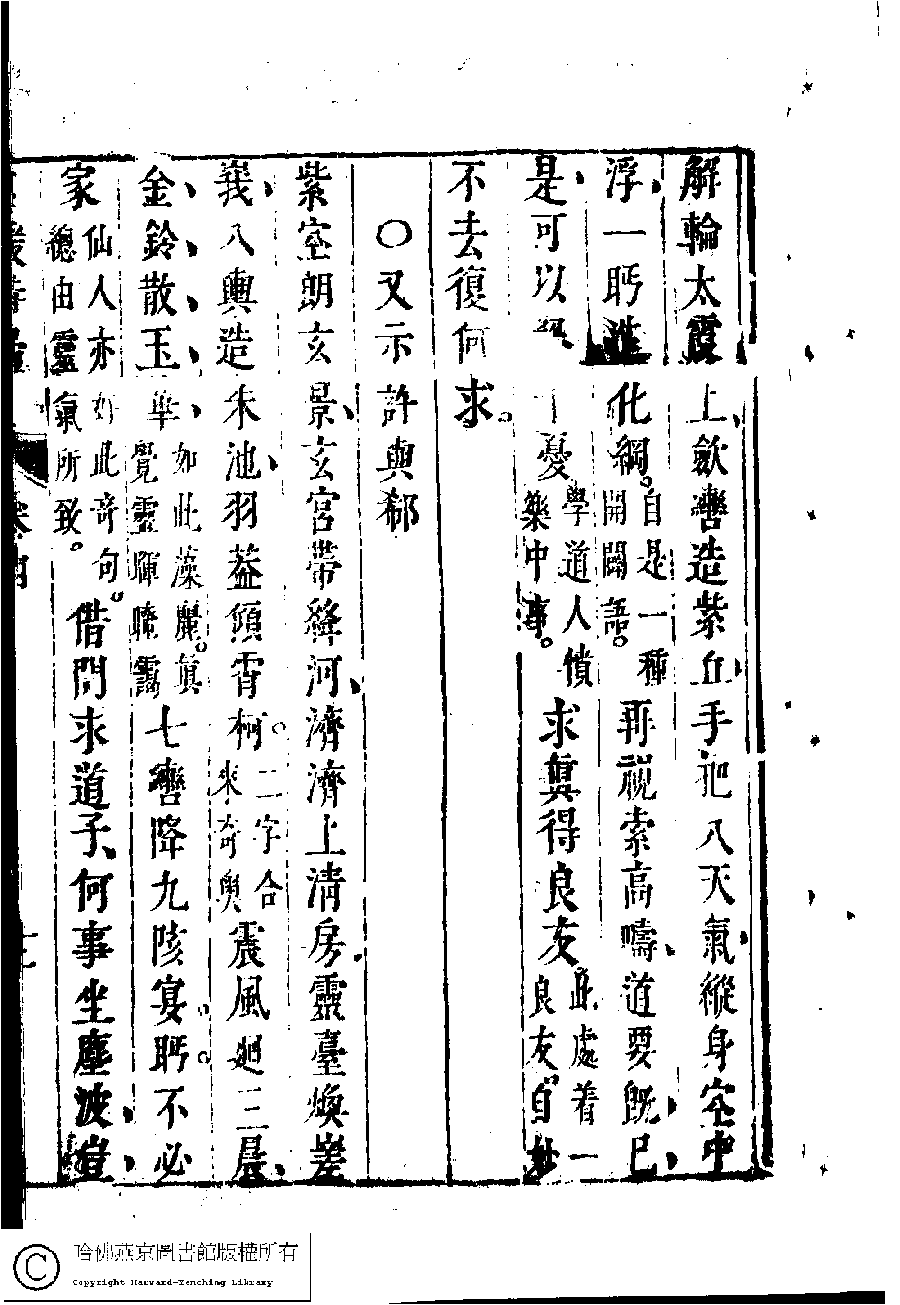 解輪太霞上歛轡造紫丘手把八天氣縱身空中
浮一眄造化綱自是一種開闢語再視索高嶹道要旣已
是可以 憂學道人憤樂中事求真得良友此處着一良友自妙
不去復何求
〇又示許與郗
紫空朗玄景玄宮帶絳河濟濟上清房靈臺煥嵳
峩八輿造朱池羽葢傾霄柯二字合來奇輿震風廻三晨
金鈴散玉華如此藻麗真覺靈暉晻靄七轡降九陔宴眄不必
家仙人亦如此奇句總由靈氣所致借問求道子何事坐塵波豈
哈佛燕京圖書館版權所有
Copyright Harvard-Yenching Library